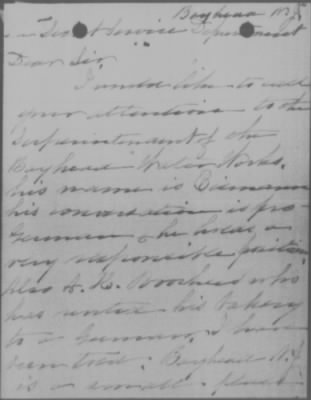 Bayhead N.J.
Secret Service Department
Dear Sir,
I would like to call
your attention to the
Superintendent of the
Bayhead Water Works.
his name is
his conversation is pro-
German & he holds a
very responsible position
also A. H. who
has rented his bakery
to a German, I have
been told. Bayhead N.J
is a small place